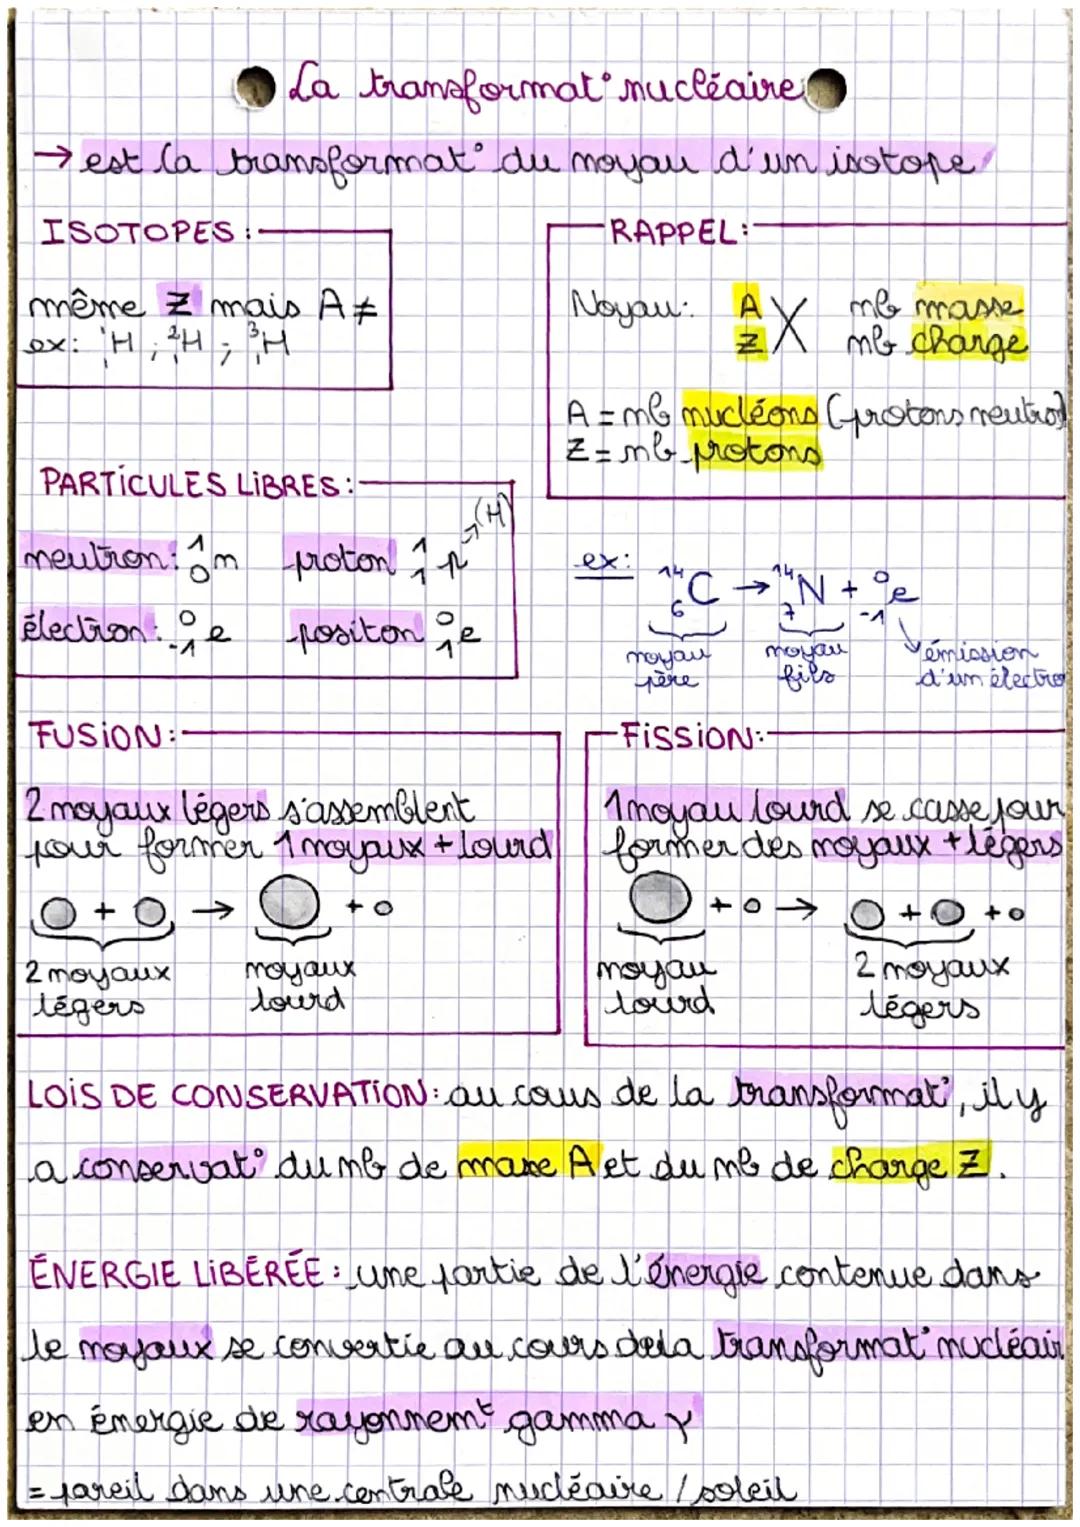 La transformat° nucléaire
→ est la transformat° du noyau d'un isotope
ISOTOPES :
même Z mais A ≠
ex: ¹₁H ; ²₁H ; ³₁H
RAPPEL:
Noyau: A Z X nb masse
nb charge
A = nb nucléons (protons neutrons)
Z = nb protons
PARTICULES LIBRES:
neutron: ¹₀n proton ¹₁p → (H)
électron: ⁰₋₁e positon ⁰₁e
ex: ¹⁴₆C → ¹⁴₇N + ⁰₋₁e
noyau père
noyau fils
émission
d'un électro
FUSION:
2 noyaux légers s'assemblent
pour former 1 noyaux + lourd
+ → +
2 noyaux
légers
noyaux
lourd
FISSION:
1 noyau lourd se casse pour
former des noyaux + légers
+ → + +
noyau
lourd
2 noyaux
légers
LOIS DE CONSERVATION: au cous de la transformat°, il y
a conservat° du nb de masse A et du nb de charge Z.
ÉNERGIE LIBÉRÉE : une partie de l'énergie contenue dans
le noyaux se convertie au cours de la transformat° nucléair
en énergie de rayonnemt gamma γ
= pareil dans une centrale nucléaire / soleil